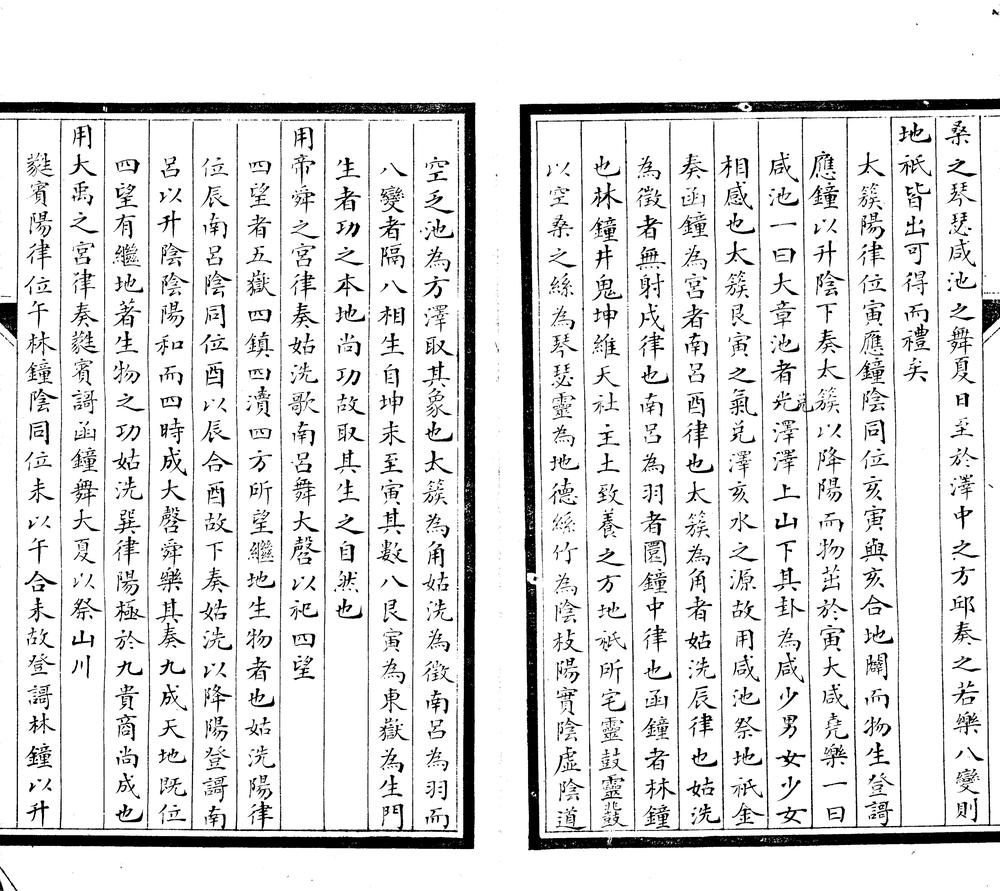 桑之琴瑟咸池之舞夏日至於澤中之方邱奏之若樂八變則
地祇皆出可得而禮矣
太簇陽律位寅應鐘陰同位亥寅與亥合地闢而物生登謌
應鐘以升陰下奏太簇以降陽而物茁於寅大咸堯樂一曰
咸池一曰大章池者兊澤澤上山下其卦為咸少男女少女
相感也太簇艮寅之氣兑澤亥水之源故用咸池祭地祇金
奏函鐘為宮者南呂酉律也太簇為角者姑洗辰律也姑洗
為徵者無射戌律也南呂為羽者圜鐘中律也函鐘者林鐘
也林鐘井鬼坤維天社主土致養之方地祇所宅靈鼓靈鼗
以空桑之絲為琴瑟靈為地德絲竹為陰枝陽實陰虛陰道
空乏池為方澤取其象也太簇為角姑洗為徵南呂為羽而
八變者隔八相生自坤未至寅其數八艮寅為東嶽為生門
生者功之本地尚功故取其生之自然也
用帝舜之宮律奏姑洗歌南呂舞大磬以祀四望
四望者五嶽四鎮四瀆四方所望繼地生物者也姑洗陽律
位辰南呂陰同位酉以辰合酉故下奏姑洗以降陽登謌南
呂以升陰陰陽和而四時成大磬舜樂其奏九成天地既位
四望有繼地著生物之功姑洗巽律陽極於九貴商尚成也
用大禹之宮律奏蕤賓謌函鐘舞大夏以祭山川
蕤賓陽律位午林鐘陰同位未以午合未故登謌林鐘以升